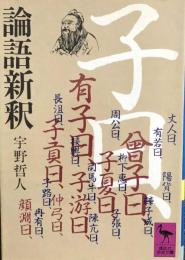 論語新釈
宇野哲人
子曰、
曾子曰、
有子曰、
子夏曰、
子游曰、
子貢曰、
仲弓曰、
顔淵曰、
丈人曰、
有若曰、
陽貨曰、
周公曰、
長沮曰、
子張曰、
陳亢曰、
司馬牛曰、
子路曰、
冉有曰、